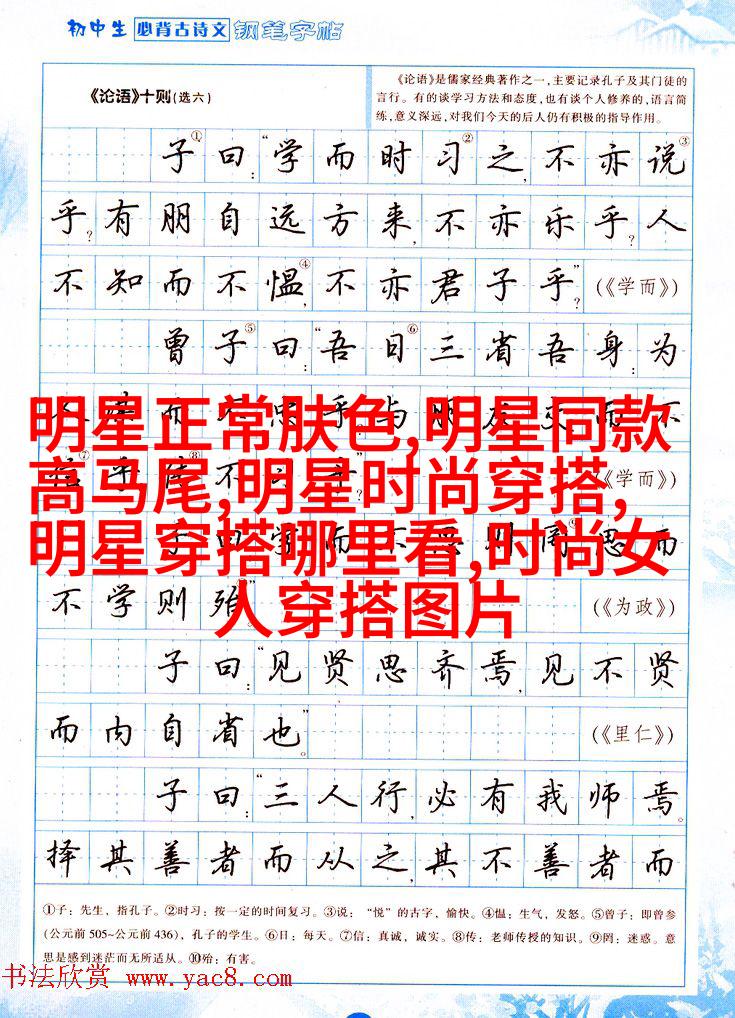 初中生 必背古诗文 钢笔字帖
《论语》十则(选六)
《论语》是儒家经典著作之一,主要记录孔子及其门徒的
言行。有的谈学习方法和态度,也有谈个人修养的,语言简
练,意义深远,对我们今天的后人仍有积极的指导作用。
子①曰:“学而时习②之,不亦说③
乎?有朋自远方来,不亦乐乎?人
不知而不愠④,不亦君子乎?”(《学而》)
曾子⑤曰:“吾日⑥三省吾身:为
而不忠乎?与朋友交而不
⑦乎?传⑧不 乎?”(《学而》)
子曰 学而不思则罔 思而
不学则殆”(《为政》)
子曰:“见贤思齐焉,见不贤
而内自省也。”(《里仁》)
子曰:“三人行,必有我师焉。
择其善者而从之,其不善者而
明星正常肤色,明星同款
高马尾,明星时尚穿搭,
明星穿搭哪里看,时尚女
人穿搭图片
①子:先生,指孔子。②时习:按一定的时间复习。③说:“悦”的古字,愉快。④愠:生气,发怒。⑤曾子:即曾参
(公元前505~公元前436),孔子的学生。⑥日:每天。⑦信:真诚,诚实。⑧传:老师传授的知识。⑨罔:迷惑。意
思是感到迷茫而无所适从。⑩殆:有害。
书法欣赏 www.yac8.com